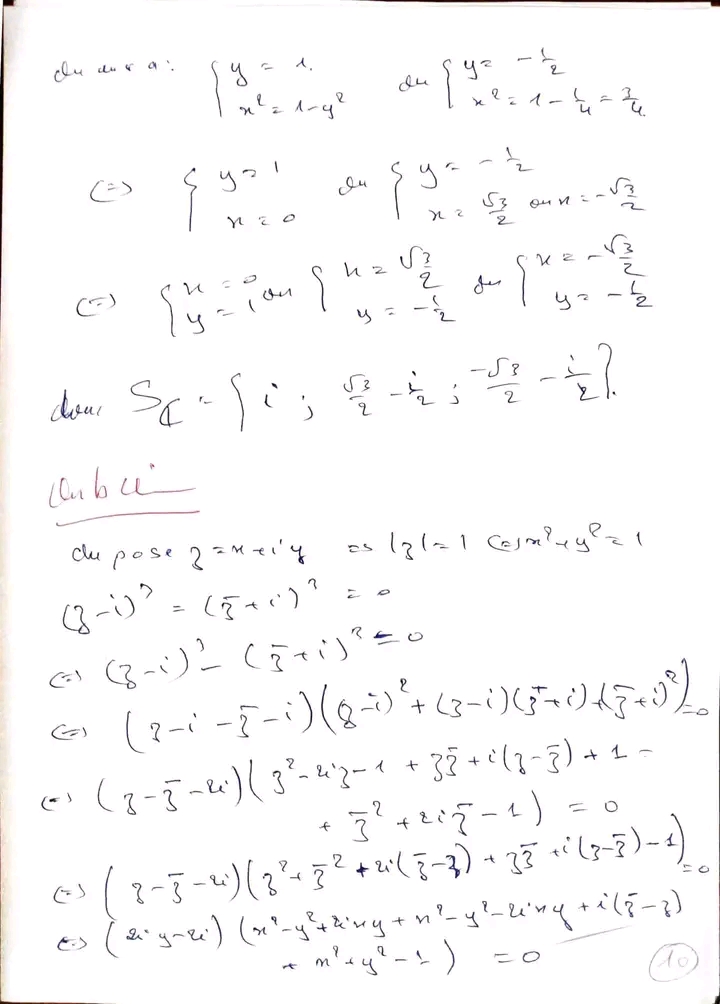 On aura : { y = 1. x² = 1 - y² ou { y = -1/2 x² = 1 - 1/4 = 3/4
(=) { y = 1 x = 0 ou { y = -1/2 x = √3/2 ou x = -√3/2
(=) { x = 0 y = 1 ou { x = √3/2 y = -1/2 ou { x = -√3/2 y = -1/2
donc Sℂ = { i ; √3/2 - i/2 ; -√3/2 - i/2 }.
On pose z = x + iy |z| = 1 (=) x² + y² = 1
(z - i)³ = (z̄ + i)³ = 0
(=) (z - i)³ - (z̄ + i)³ = 0
(=) (z - i - z̄ - i)((z - i)² + (z - i)(z̄ + i) + (z̄ + i)²) = 0
(=) (z - z̄ - 2i)(z² - 2iz - 1 + zz̄ + i(z - z̄) + 1 -
+ z̄² + 2iz̄ - 1) = 0
(=) (z - z̄ - 2i)(z² + z̄² + 2i(z̄ - z) + zz̄ + i(z - z̄) - 1) = 0
(=) (2iy - 2i)(x² - y² + 2ixy + x² - y² - 2ixy + i(z̄ - z)
+ x² + y² - 1) = 0
10